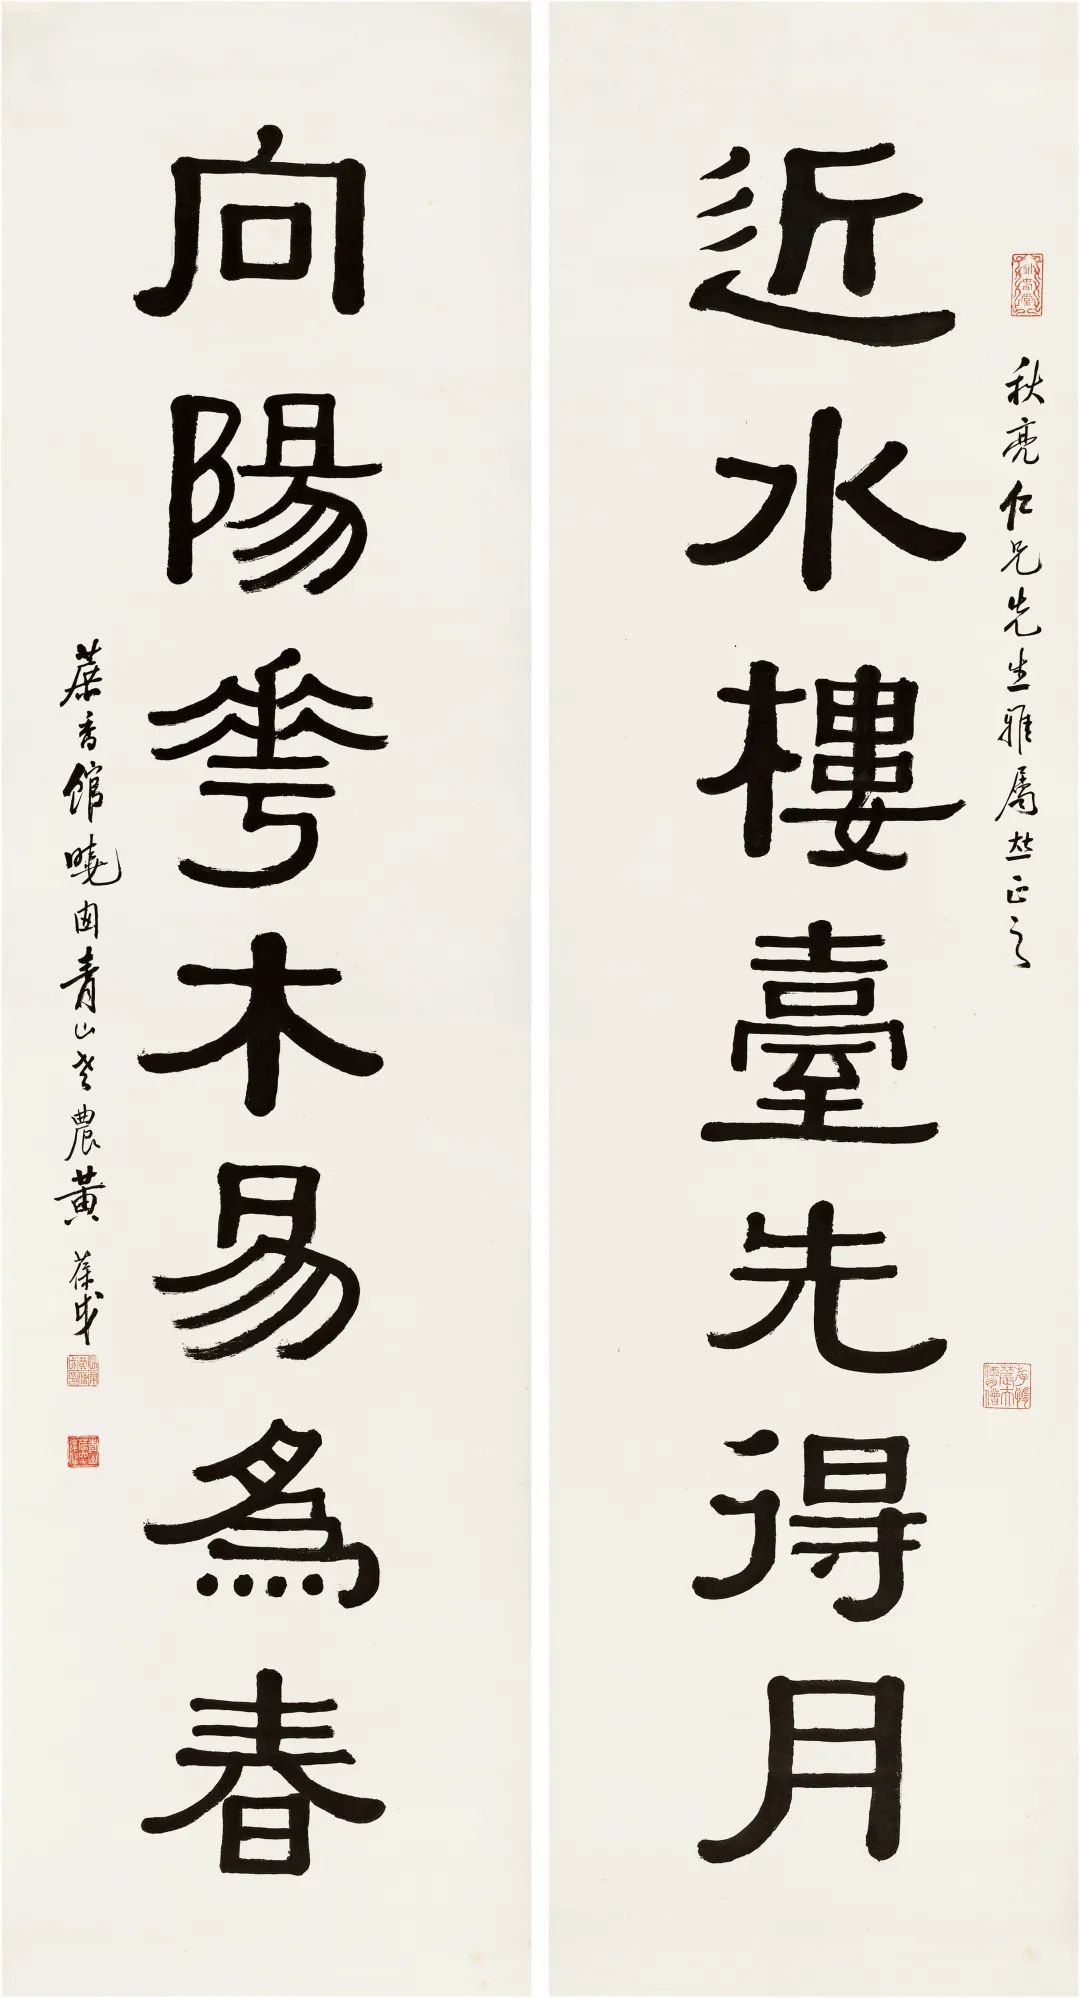 秋亮仁兄先生雅屬並正之
近水樓臺先得月
向陽華木易為春
蔗香館曉囱青山老農黃葆戉